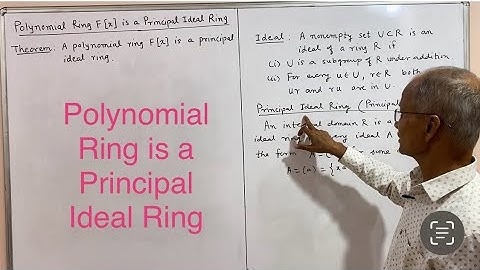 Polynomial Ring F[x] is a Principal Ideal Ring
Theorem: A polynomial ring F[x] is a principal
ideal ring.
Polynomial
Ring is a
Principal
Ideal Ring
Ideal: A nonempty set U⊂R is an
ideal of a ring R if
(i) U is a subgroup of R under addition
(ii) For every u∈U, r∈R both
ur and ru are in U.
Principal Ideal Ring (Principal
An integral domain R is a
ideal ery ideal A
the form A = for some
A = (a) = {xa